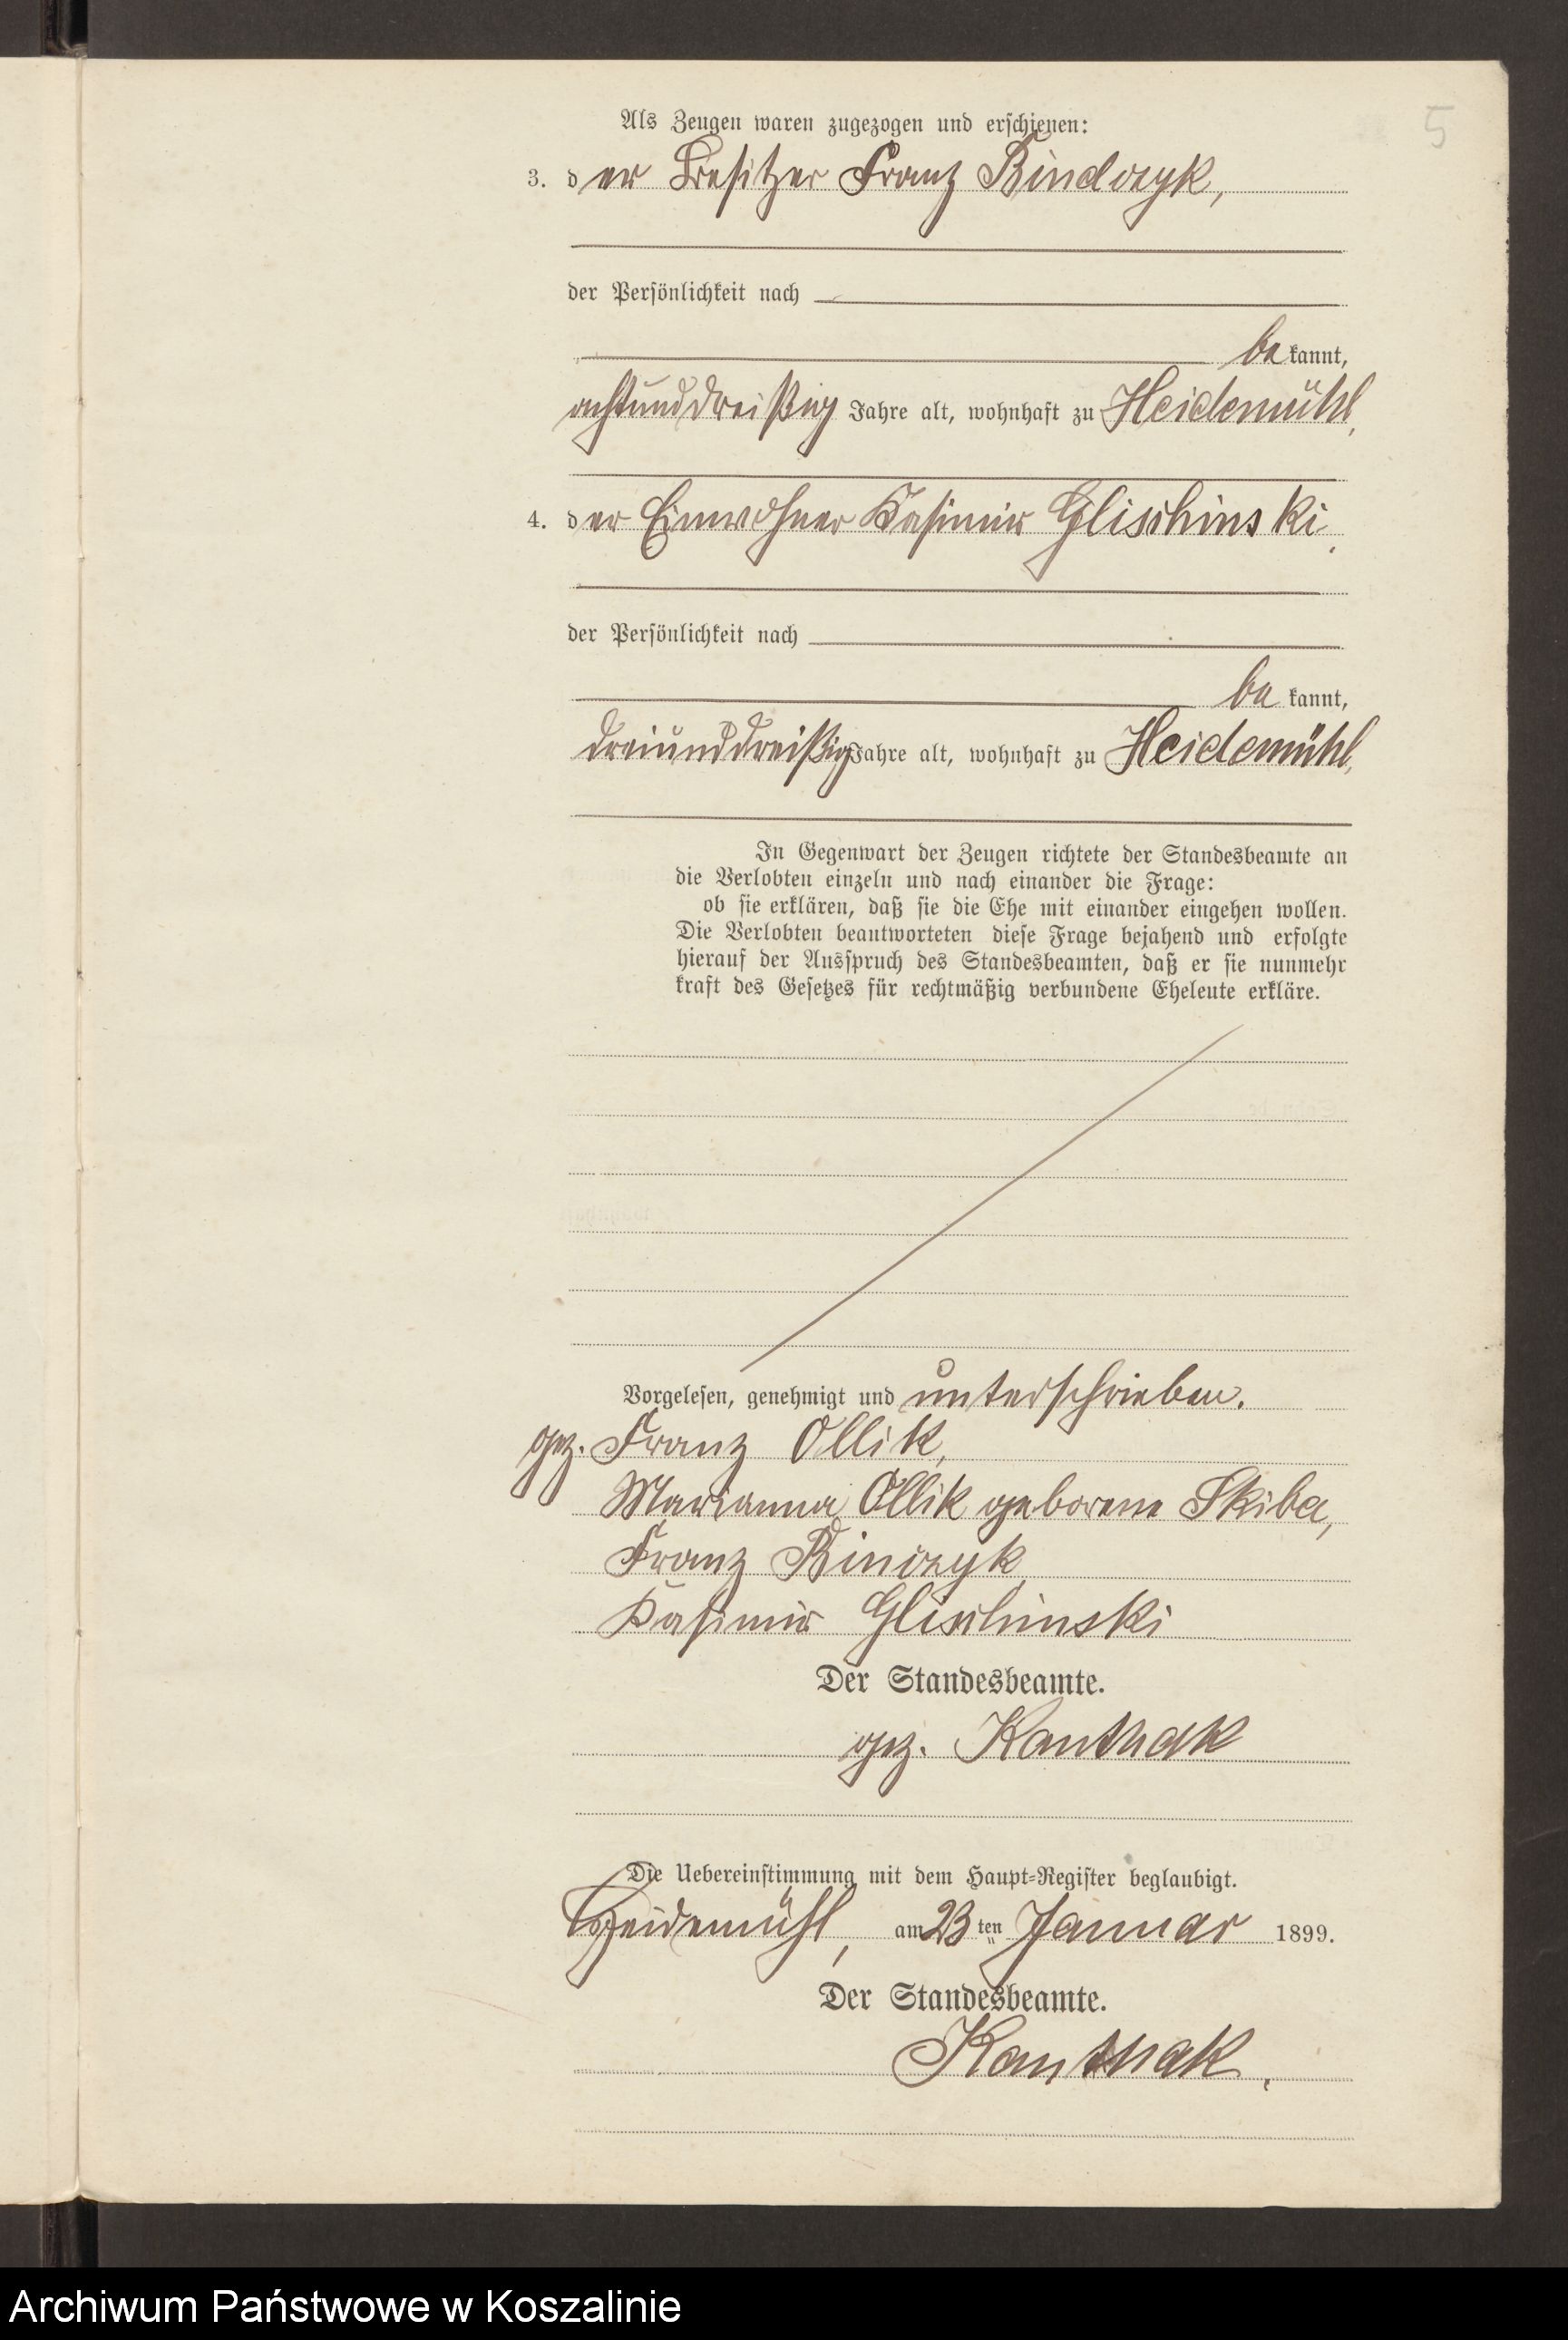 5
Als Zeugen waren zugezogen und erschienen:
3. der Besitzer Franz Bindczyk,
der Persönlichkeit nach
bekannt,
achtunddreißig Jahre alt, wohnhaft zu Heidemühl,
4. der Einwohner Kasimir Glischinski,
der Persönlichkeit nach
bekannt,
dreiunddreißig Jahre alt, wohnhaft zu Heidemühl,
In Gegenwart der Zeugen richtete der Standesbeamte an
die Verlobten einzeln und nach einander die Frage:
ob sie erklären, daß sie die Ehe mit einander eingehen wollen.
Die Verlobten beantworteten diese Frage bejahend und erfolgte
hierauf der Ausspruch des Standesbeamten, daß er sie nunmehr
kraft des Gesetzes für rechtmäßig verbundene Eheleute erkläre.
Vorgelesen, genehmigt und unterschrieben.
gez. Franz Ollik,
Marianna Ollik geborene Skiba,
Franz Binczyk
Kasimir Glischinski
Der Standesbeamte.
gez. Kanthak
Die Uebereinstimmung mit dem Haupt=Register beglaubigt.
Heidemühl, am 23ten Januar 1899.
Der Standesbeamte.
Kanthak.
Archiwum Państwowe w Koszalinie